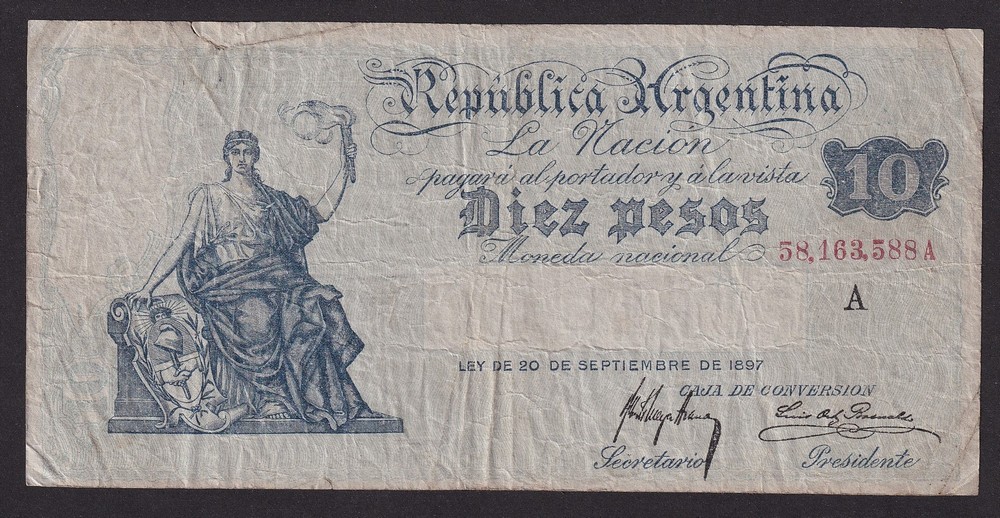 República Argentina
La Nación
pagará al portador y á la vista
10
Diez pesos
Moneda nacional
58,163,588 A
A
LEY DE 20 DE SEPTIEMBRE DE 1897
CAJA DE CONVERSION
Secretario
Presidente